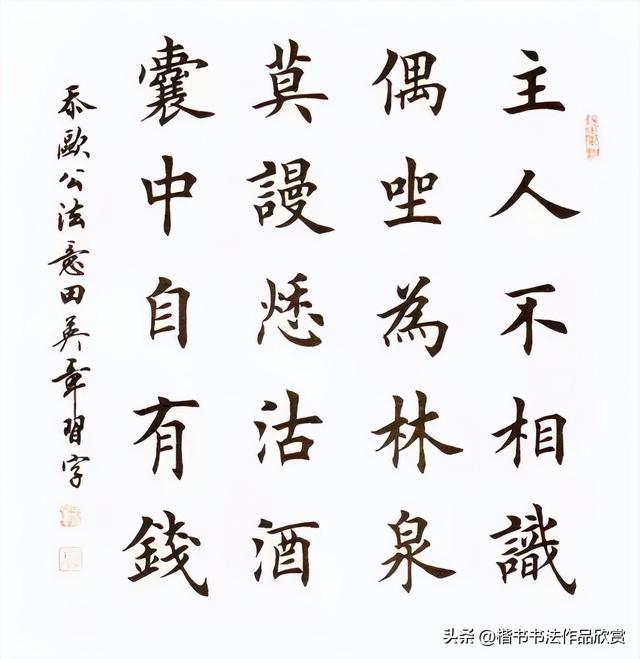 主人不相識
偶坐為林泉
莫謾愁沽酒
囊中自有錢
歐公法意田英章習字
头条 @楷书书法作品欣赏